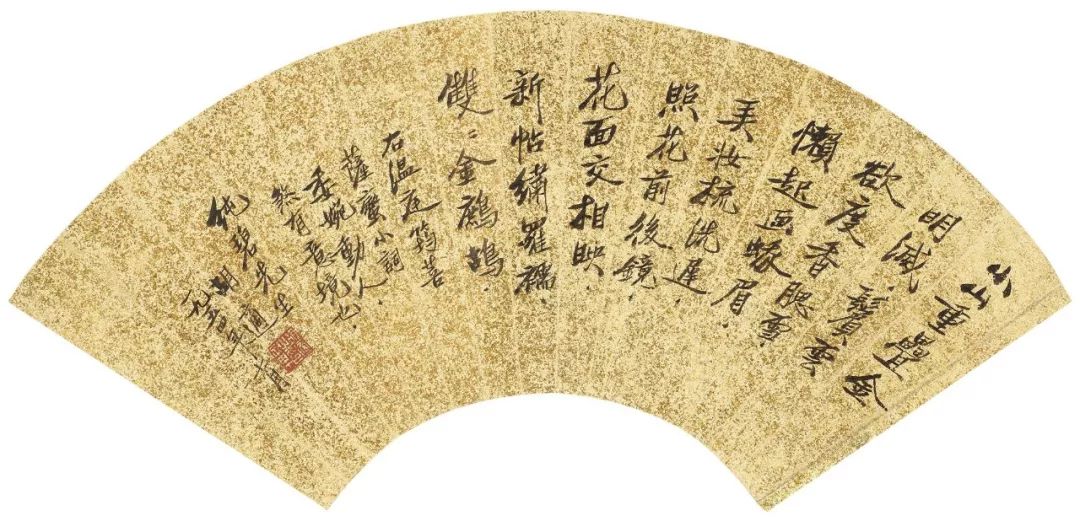 小山重疊金
明滅、鬢雲
欲度香腮雪、
懶起画蛾眉、
弄妆梳洗遲、
照花前後鏡、
花面交相映、
新帖繡羅襦、
雙〻金鷓鴣、
右溫庭筠菩
薩蠻小詞
委婉動人、
終有意境也、
純碧先生
胡適